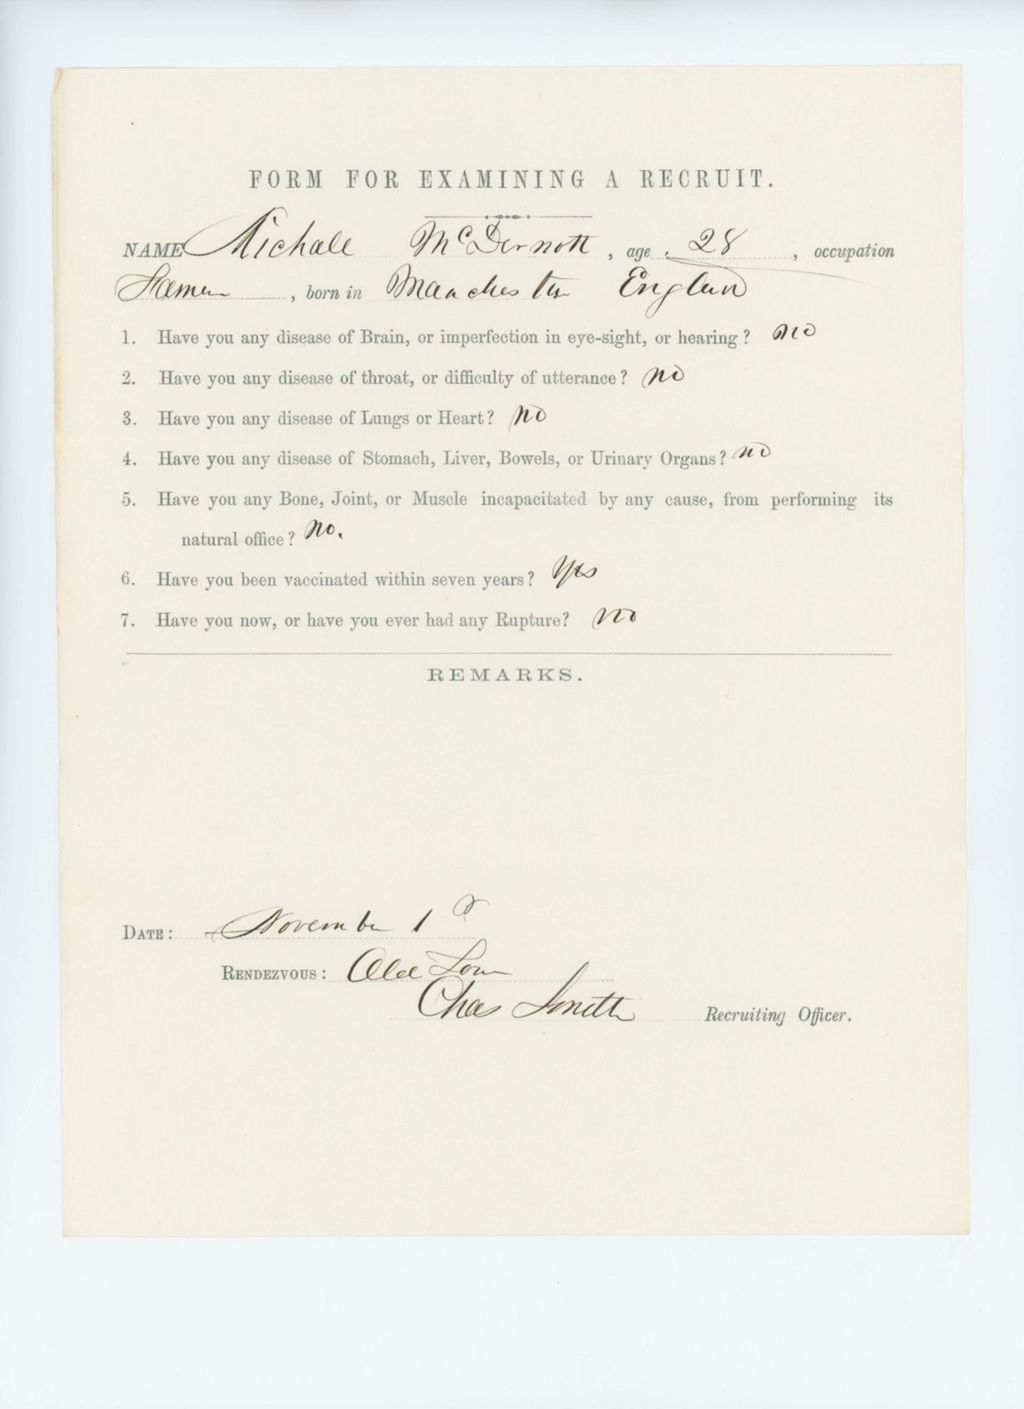 FORM FOR EXAMINING A RECRUIT.
NAME Michale McDermott, age 28, occupation
, born in Manchester England
1. Have you any disease of Brain, or imperfection in eye-sight, or hearing? No
2. Have you any disease of throat, or difficulty of utterance? No
3. Have you any disease of Lungs or Heart? No
4. Have you any disease of Stomach, Liver, Bowels, or Urinary Organs? No
5. Have you any Bone, Joint, or Muscle incapacitated by any cause, from performing its
natural office? No.
6. Have you been vaccinated within seven years? Yes
7. Have you now, or have you ever had any Rupture? No
REMARKS.
DATE: November 1
RENDEZVOUS:
Chas Recruiting Officer.